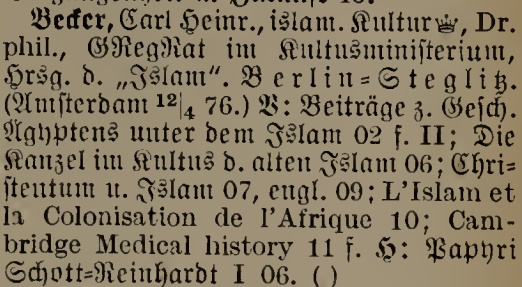 Becker, Carl Heinr., islam. Kultur♕, Dr.
phil., GRegRat im Kultusministerium,
Hrsg. d. „Islam“. Berlin=Steglitz.
(Amsterdam 12|4 76.) V: Beiträge z. Gesch.
Ägyptens unter dem Islam 02 f. II; Die
Kanzel im Kultus d. alten Islam 06; Chri=
stentum u. Islam 07, engl. 09; L'Islam et
la Colonisation de l'Afrique 10; Cam-
bridge Medical history 11 f. H: Papyri
Schott=Reinhardt I 06. ( )